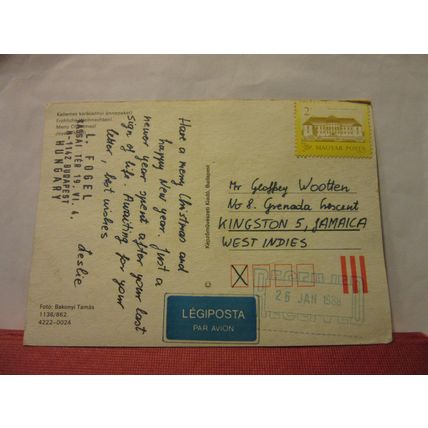 Kellemes karácsonyi ünnepeket!
Merry Christmas!
L. FOGEL
KASSAI TÉR 19. VI. 4.
H-1142 BUDAPEST
HUNGARY
Have a merry Christmas and
happy New Year. Just a
newer year spent after your last
sign of life. Awaiting for your
letter, best wishes
Leslie
Foto: Bakonyi Tamás
1136/862
4222-0024
Képzőművészeti Kiadó, Budapest
2
MAGYAR POSTA
Mr Geoffrey Wootten
No 8. Grenada Crescent
KINGSTON 5, JAMAICA
WEST INDIES
LÉGIPOSTA
PAR AVION
26 JAN 1988